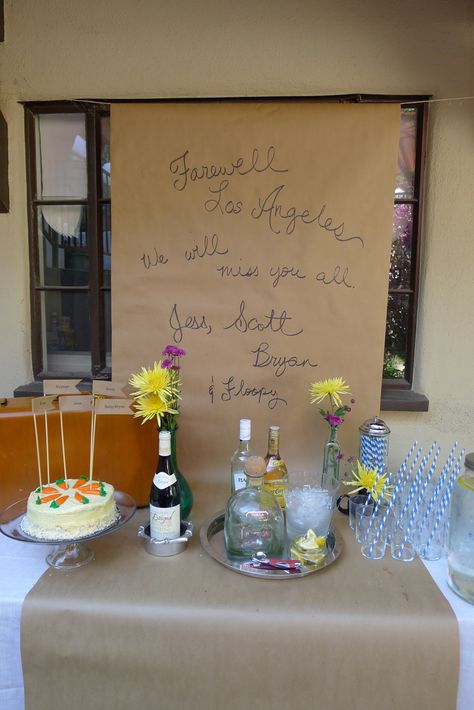 Farewell
Los Angeles
We will
miss you all.
Jess, Scott
Bryan
& Floopy